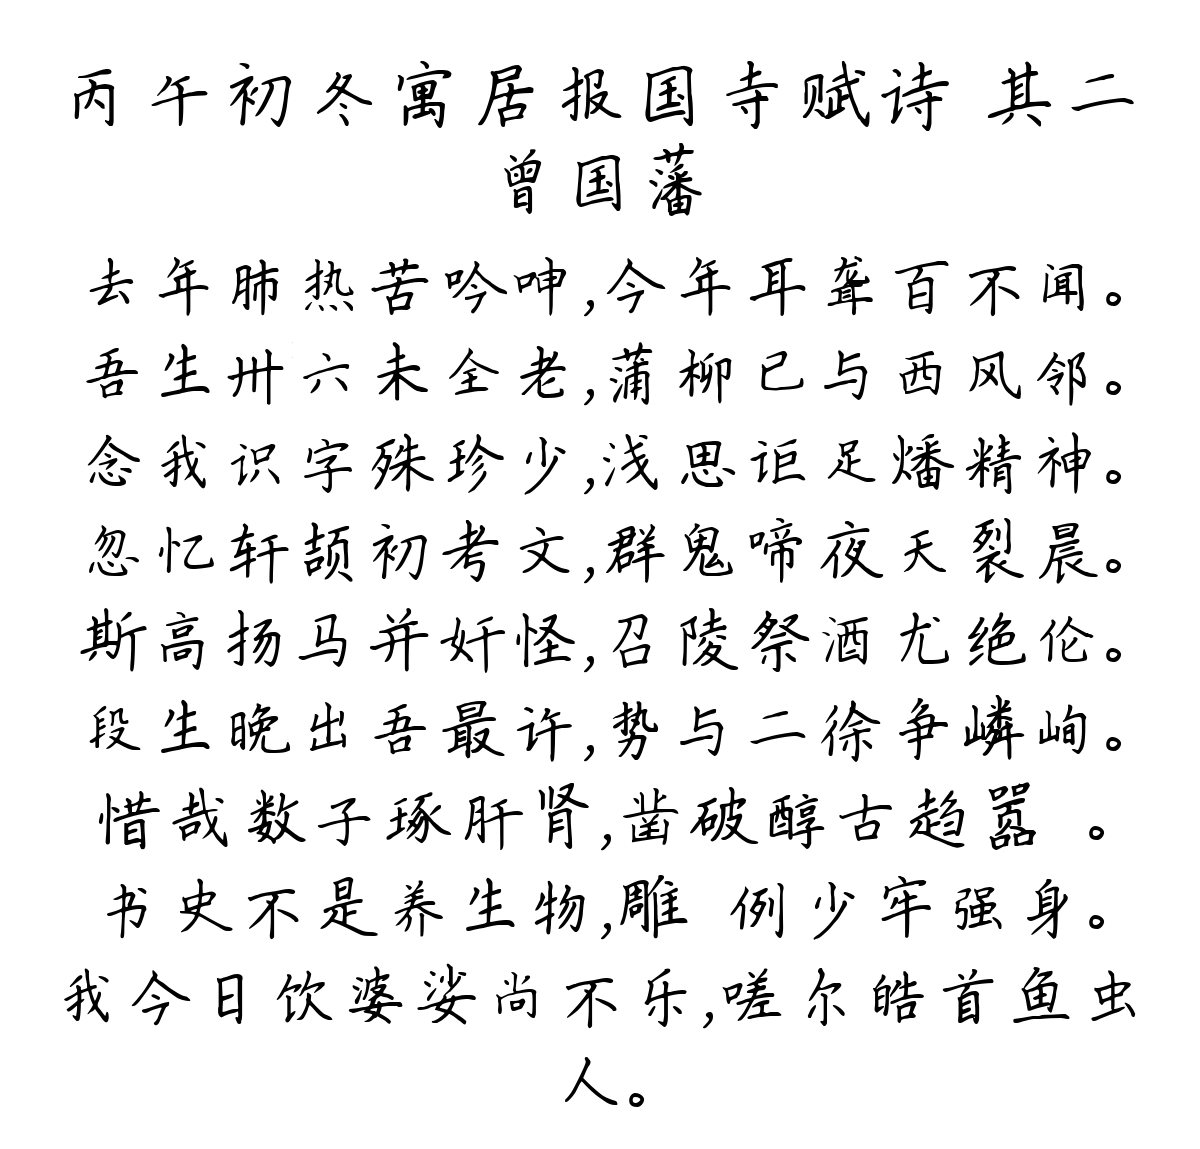 丙午初冬寓居报国寺赋诗 其二
曾国藩
去年肺热苦吟呻,今年耳聋百不闻。
吾生卅六未全老,蒲柳已与西风邻。
念我识字殊珍少,浅思讵足燔精神。
忽忆轩颉初考文,群鬼啼夜天裂晨。
斯高扬马并奸怪,召陵祭酒尤绝伦。
段生晚出吾最许,势与二徐争嶙峋。
惜哉数子琢肝肾,凿破醇古趋嚣 。
书史不是养生物,雕 例少牢强身。
我今日饮婆娑尚不乐,嗟尔皓首鱼虫
人。